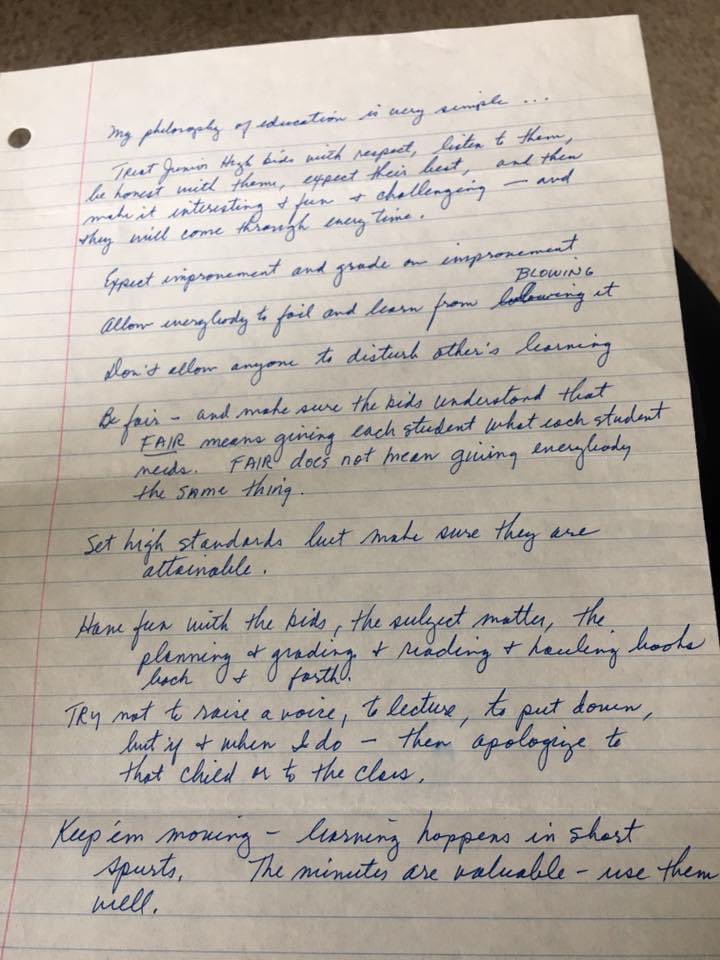 My philosophy of education is very simple ...
Treat Junior High kids with respect, listen to them,
be honest with them, expect their best, and then
make it interesting & fun & challenging — and
they will come through every time.
Expect improvement and grade on improvement
BLOWING
Allow everybody to fail and learn from it
Don't allow anyone to disturb other's learning
Be fair - and make sure the kids understand that
FAIR means giving each student what each student
needs. FAIR does not mean giving everybody
the same thing.
Set high standards but make sure they are
attainable.
Have fun with the kids, the subject matter, the
planning & grading & reading & hauling books
back & forth.
TRY not to raise a voice, to lecture, to put down,
but if & when I do - then apologize to
that child or to the class.
Keep 'em moving - learning happens in short
spurts. The minutes are valuable - use them
well.